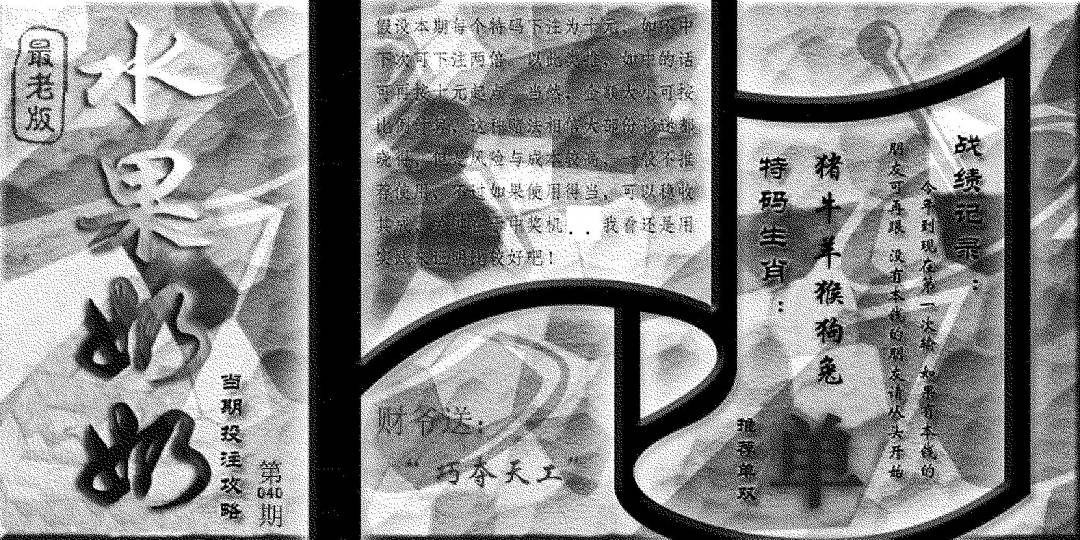 最老版
水果奶奶
当期投注攻略
第040期
假设本期每个特码下注为十元，如不中
下次可下注两倍，以此类推，如中的话
可再按十元起点，当然，金额大小可按
比例
这种
法相信大部份彩迷都
晓得，但是风险与成本较高，一般不推
荐使用，不过如果使用得当，可以稳收
其成，
中奖机..我看还是用
实践来证明比较好吧！
财爷送：
“巧夺天工”
战绩记录：
今年到现在第一次输 如果有本钱的
朋友可再跟 没有本钱的朋友请从头开始
猪牛羊猴狗兔
特码生肖：
推荐单双
单